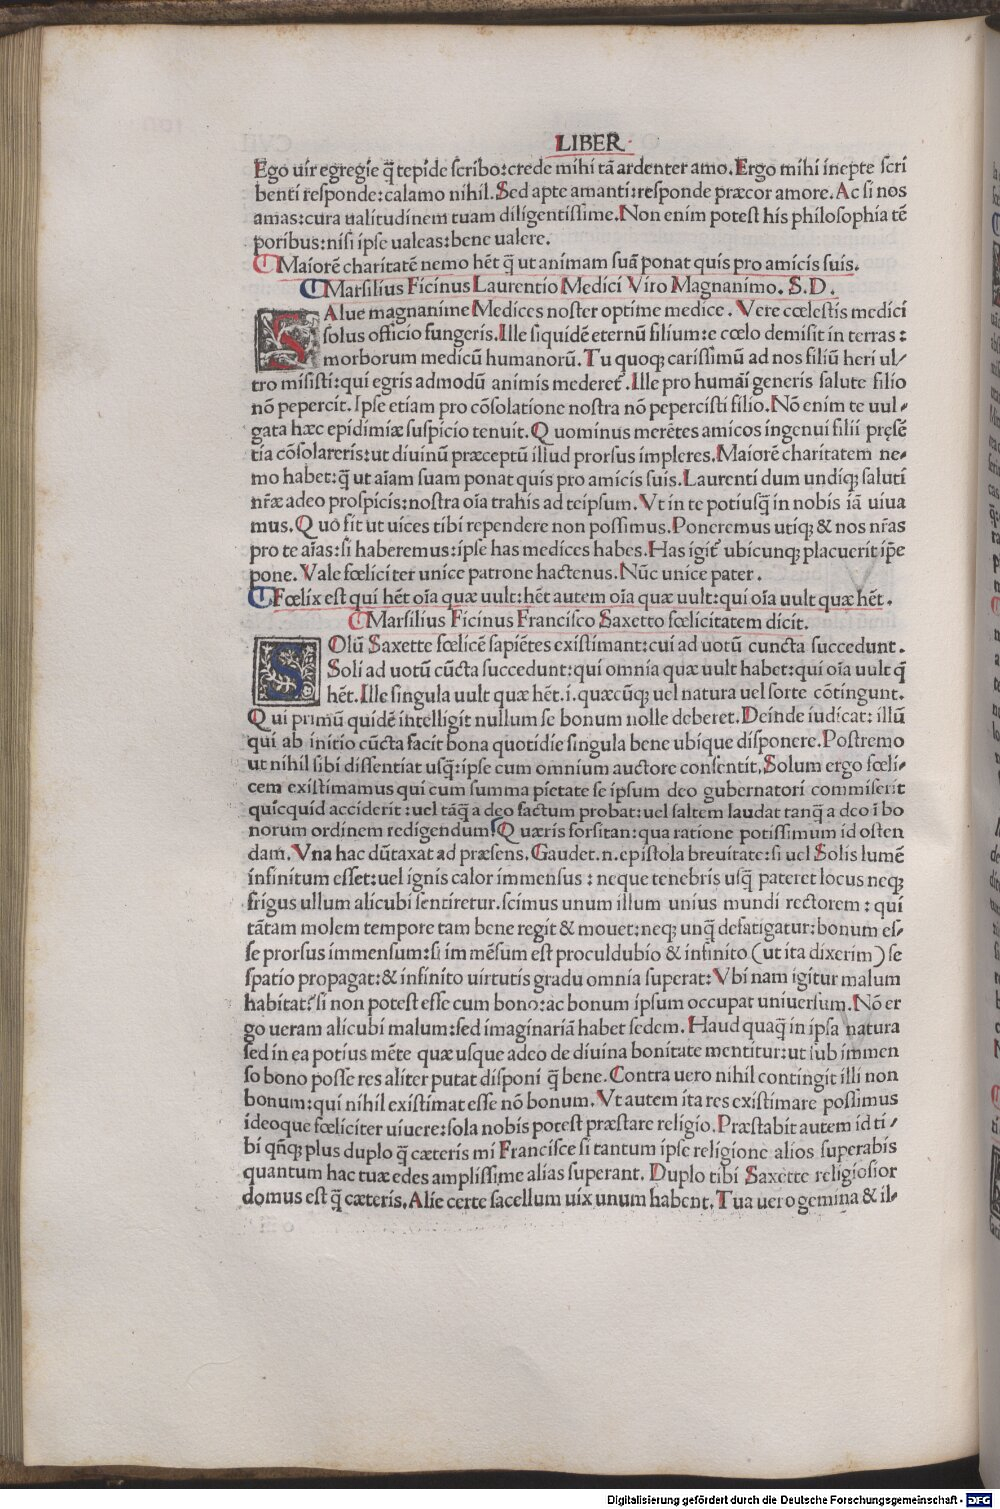 LIBER
Ego uir egregie q̃ tepide scribo:crede mihi tã ardenter amo.Ergo mihi inepte scri
benti responde:calamo nihil.Sed apte amanti:responde præcor amore.Ac si nos
amas:cura ualitudinem tuam diligentissime.Non enim potest his philosophia tẽ
poribus:nisi ipse ualeas:bene ualere.
Maiorẽ charitatẽ nemo hẽt q̃ ut animam suã ponat quis pro amicis suis.
Marsilius Ficinus Laurentio Medici Viro Magnanimo. S.D.
SAlue magnanime Medices noster optime medice. Vere cœlestis medici
solus officio fungeris.Ille siquidẽ eternũ filium:e cœlo demisit in terras:
morborum medicũ humanorũ.Tu quoqꝫ carissimũ ad nos filiũ heri ul/
tro misisti:qui egris admodũ animis mederet̃.Ille pro humãi generis salute filio
nõ pepercit.Ipse etiam pro cõsolatione nostra nõ pepercisti filio.Nõ enim te uul/
gata hæc epidimiæ suspicio tenuit.Quominus merẽtes amicos ingenui filii pręsẽ
tia cõsolareris:ut diuinũ præceptũ illud prorsus impleres.Maiorẽ charitatem ne/
mo habet:q̃ ut aĩam suam ponat quis pro amicis suis.Laurenti dum undiqꝫ saluti
nr̃æ adeo prospicis:nostra oĩa trahis ad teipsum.Vt in te potiusq̃ in nobis iã uiua
mus.Quo fit ut uices tibi rependere non possimus.Poneremus utiqꝫ & nos nr̃as
pro te aĩas:si haberemus:ipse has medices habes.Has igit̃ ubicunqꝫ placuerit ip̃e
pone.Vale fœliciter unice patrone hactenus.Nũc unice pater.
Fœlix est qui hẽt oĩa quæ uult:hẽt autem oĩa quæ uult:qui oĩa uult quæ hẽt.
Marsilius Ficinus Francisco Saxetto fœlicitatem dicit.
SOlũ Saxette fœlicẽ sapiẽtes existimant:cui ad uotũ cuncta succedunt.
Soli ad uotũ cũcta succedunt:qui omnia quæ uult habet:qui oĩa uult q̃
hẽt.Ille singula uult quæ hẽt.i.quæcũqꝫ uel natura uel sorte cõtingunt.
Qui primũ quidẽ intelligit nullum se bonum nolle deberet.Deinde iudicat:illũ
qui ab initio cũcta facit bona quotidie singula bene ubique disponere.Postremo
ut nihil sibi dissentiat usq̃:ipse cum omnium auctore consentit.Solum ergo fœli/
cem existimamus qui cum summa pietate se ipsum deo gubernatori commiserit
quicquid acciderit:uel tãq̃ a deo factum probat:uel saltem laudat tanq̃ a deo ĩ bo
norum ordinem redigendum?Quæris forsitan:qua ratione potissimum id osten
dam.Vna hac dũtaxat ad præsens.Gaudet.n.epistola breuitate:si uel Solis lumẽ
infinitum esset:uel ignis calor immensus:neque tenebris usq̃ pateret locus neqꝫ
frigus ullum alicubi sentiretur.scimus unum illum unius mundi rectorem:qui
tãtam molem tempore tam bene regit & mouet:neqꝫ unq̃ defatigatur:bonum es/
se prorsus immensum:si im mẽsum est proculdubio & infinito (ut ita dixerim) se
spatio propagat:& infinito uirtutis gradu omnia superat:Vbi nam igitur malum
habitat?si non potest esse cum bono:ac bonum ipsum occupat uniuersum.Nõ er
go ueram alicubi malum:sed imaginariã habet sedem.Haud quaq̃ in ipsa natura
sed in ea potius mẽte quæ usque adeo de diuina bonitate mentitur:ut sub immen
so bono posse res aliter putat disponi q̃ bene.Contra uero nihil contingit illi non
bonum:qui nihil existimat esse nõ bonum.Vt autem ita res existimare possimus
ideoque fœliciter uiuere:sola nobis potest præstare religio.Præstabit autem id ti/
bi qñqꝫ plus duplo q̃ cæteris mi Francisce si tantum ipse religione alios superabis
quantum hac tuæ edes amplissime alias superant.Duplo tibi Saxette religiosior
domus est q̃ cæteris.Alie certe sacellum uix unum habent.Tua uero gemina & il/
Digitalisierung gefördert durch die Deutsche Forschungsgemeinschaft - DFG